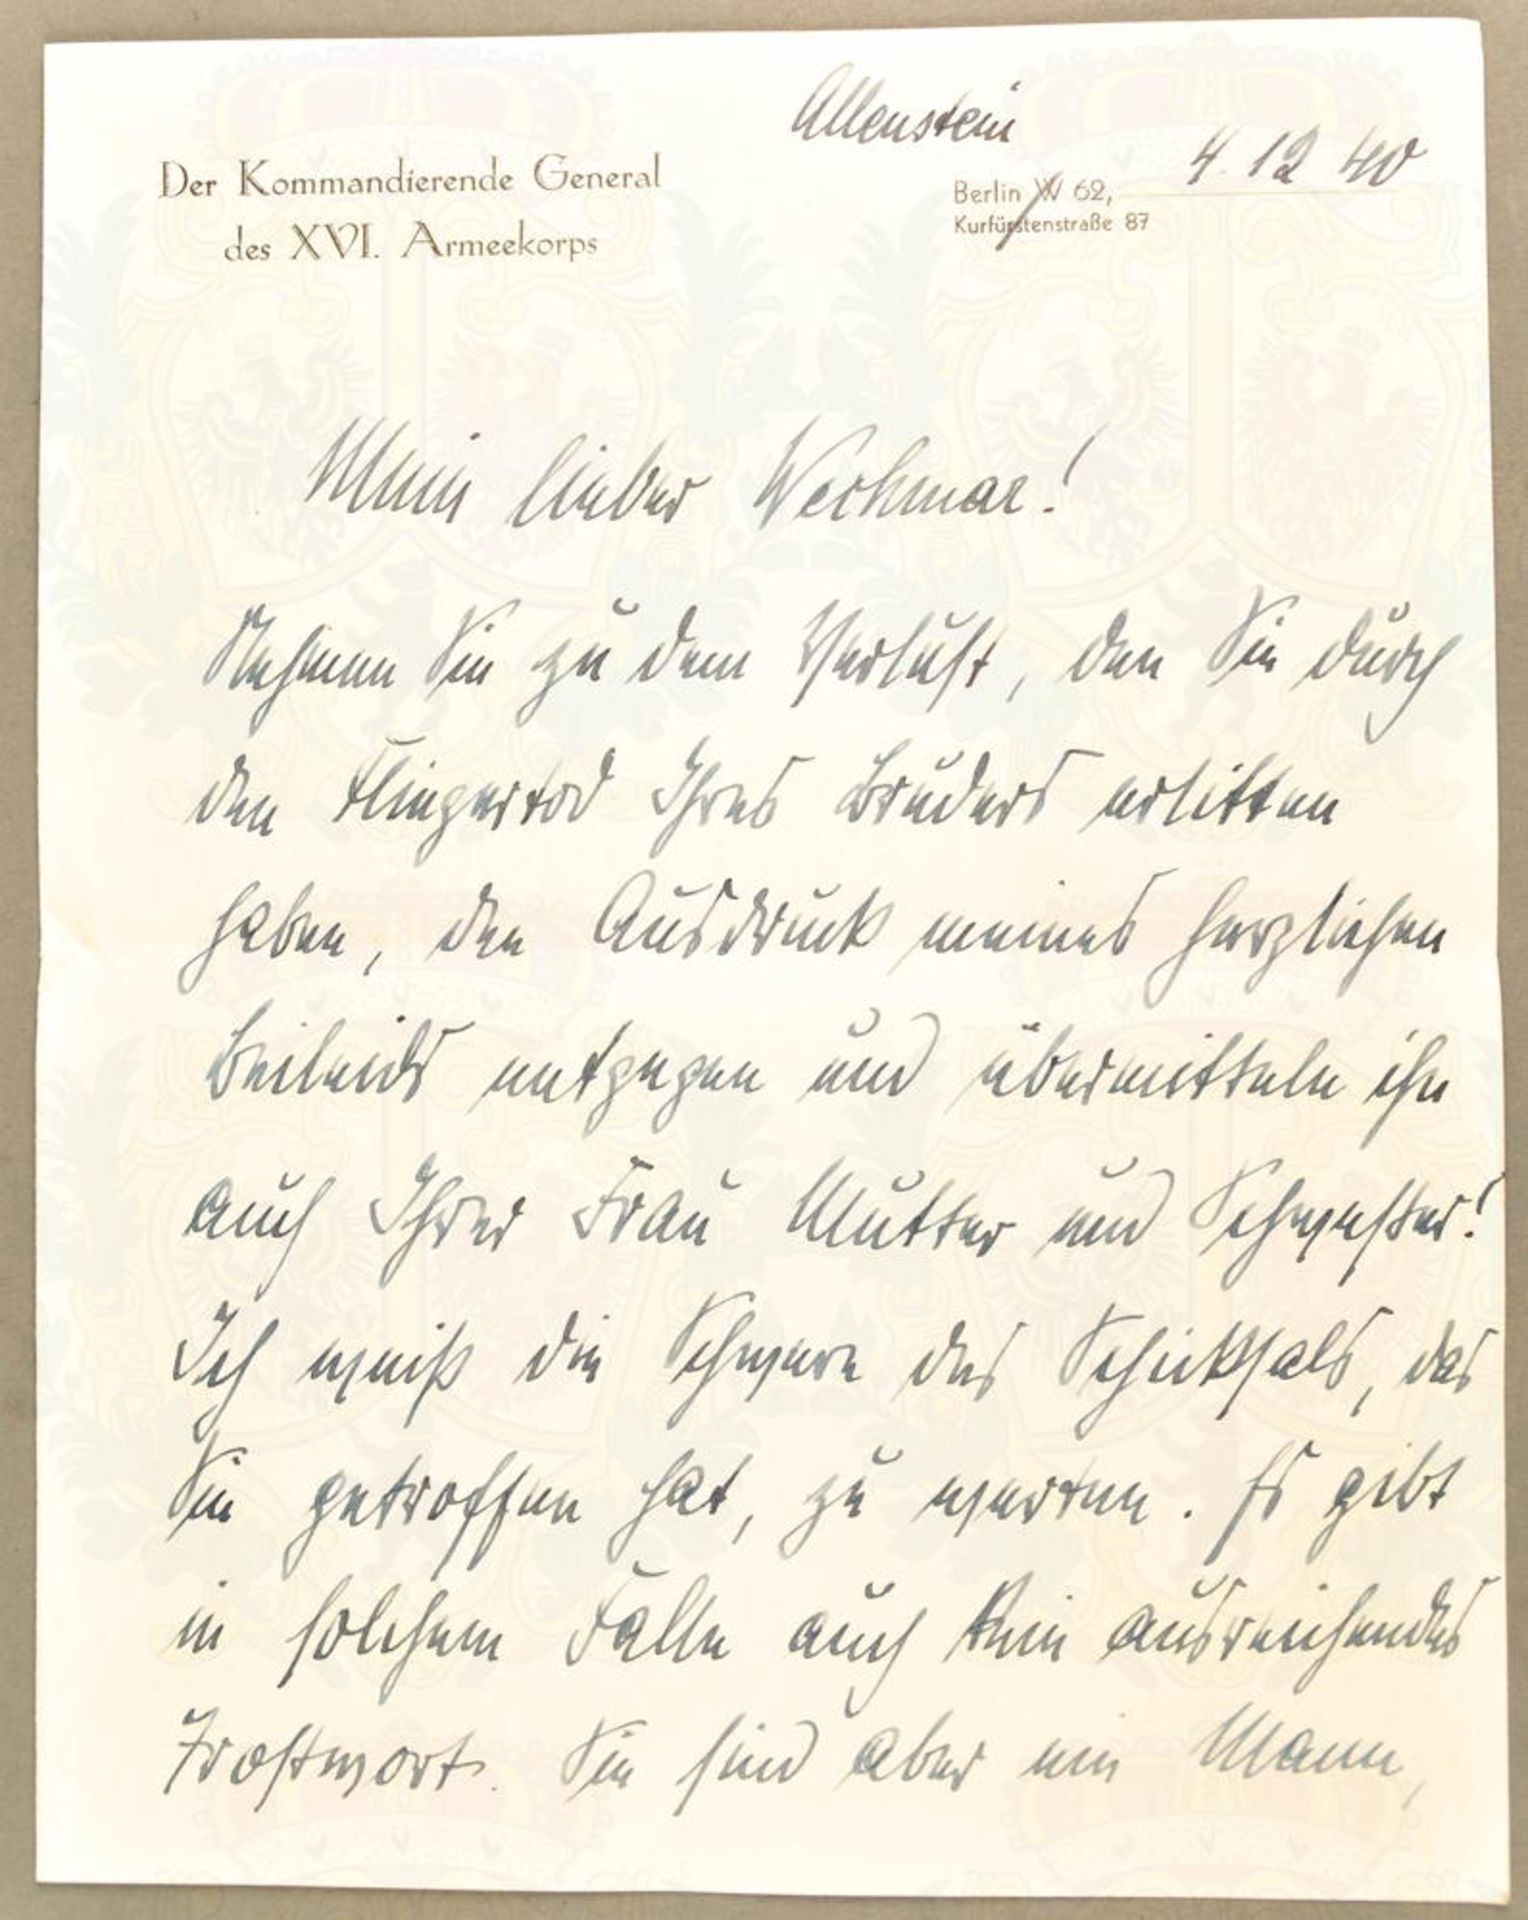 Allenstein
4. 12 40
Der Kommandierende General
des XVI. Armeekorps
Berlin W 62,
Kurfürstenstraße 87
Mein lieber Wechmar!
Nehmen Sie zu dem Verlust, den Sie durch
den Fliegertod Ihres Bruders erlitten
haben, den Ausdruck meines herzlichen
Beileids entgegen und übermitteln ihn
auch Ihrer Frau Mutter und Schwester!
Ich weiß die Schwere des Schicksals, das
Sie getroffen hat, zu werten. Es gibt
in solchem Falle auch kein ausreichendes
Trostwort. Sie sind aber ein Mann,